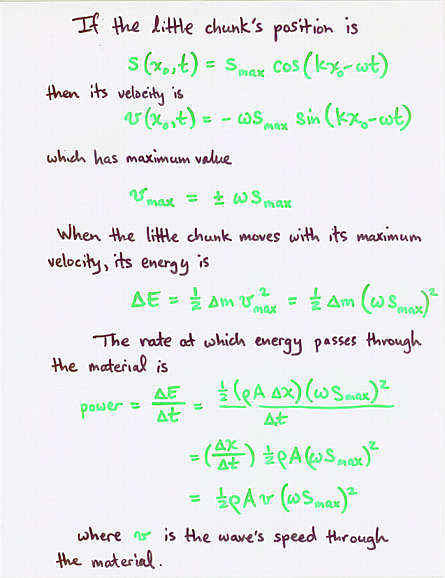 If the little chunk's position is
s(x₀,t) = s_max cos(kx₀-ωt)
then its velocity is
v(x₀,t) = - ωs_max sin(kx₀-ωt)
which has maximum value
v_max = ± ωs_max
When the little chunk moves with its maximum
velocity, its energy is
ΔE = ½ Δm v²_max = ½ Δm (ωs_max)²
The rate at which energy passes through
the material is
power = ΔE/Δt = ½(ρA Δx)(ωs_max)²/Δt
= (Δx/Δt) ½ρA(ωs_max)²
= ½ρAv(ωs_max)²
where v is the wave's speed through
the material.